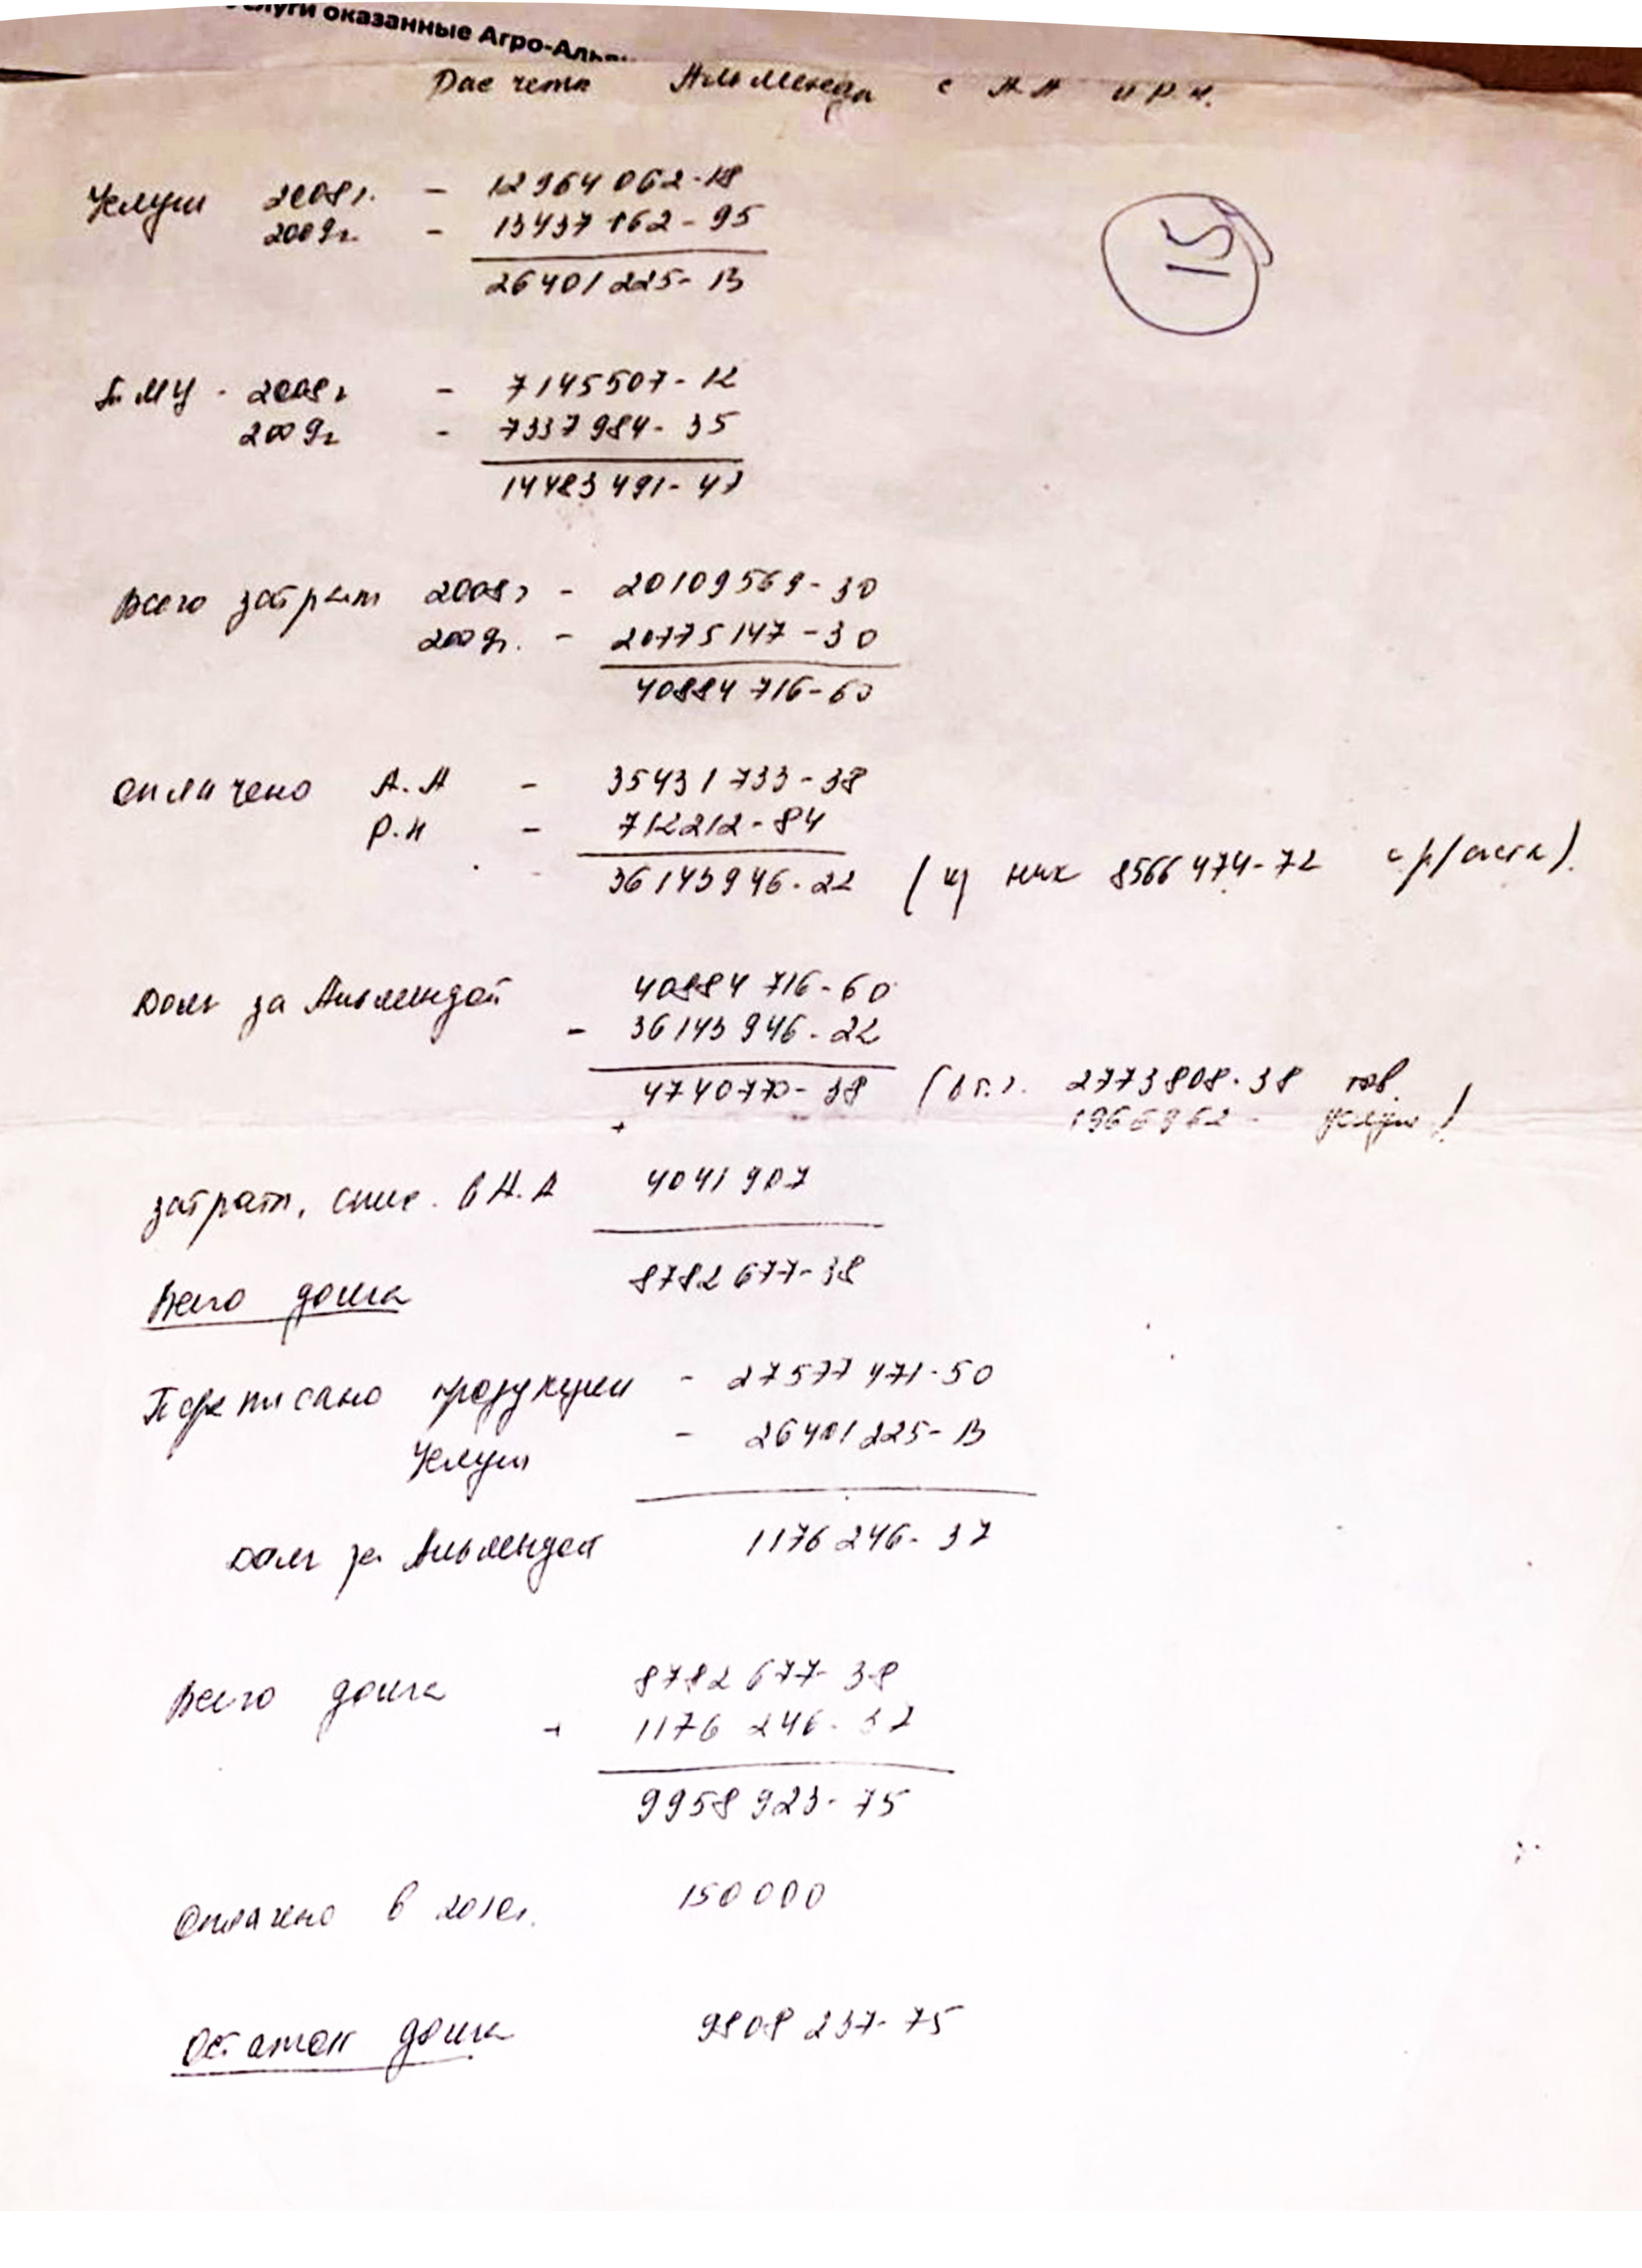 слуги оказанные Агро-Аль
Расчеты Альменда с А.А и Р.Н.
15
Услуги 2008г. - 12964062-18
2009г. - 13437162-95
26401225-13
ТМЦ - 2008г - 7145507-12
2009г - 7337984-35
14483491-47
Всего затрат 2008г - 20109569-30
2009г. - 20775147-30
40884716-60
оплачено А.А - 35431733-38
Р.Н - 712212-84
36143946-22 ( 8566474-72 с р/счета).
Долг за Альмендой 40884716-60
- 36143946-22
4740770-38 (в т.ч. 2773808-38 тов.
+ 1966962- услуги)
затрат, спис. в А.А 4041907
8782677-38
Всего долга
Подписано продукции - 27577471-50
Услуги - 26401225-13
Долг за Альмендой 1176246-37
Всего долга 8782677-38
+ 1176246-37
9958923-75
Оплачено в 2010г. 150000
Остаток долга 9808237-75